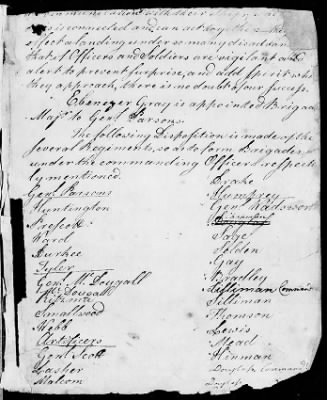 is connected and can act together
effect a landing under so many disadvan
that if Officers and Soldiers are vigilant and
alert to prevent surprise, and add spirit when
they approach, there is no doubt of our success.
Ebenezer Gray is appointed Brigade
Majr to Genl Parsons.
The following Disposition is made of the
several Regiments, so as to form Brigades
under the commanding Officers respect
ly mentioned.
Genl Parsons
Huntington
Prescott
Ward
Durkee
Tyler
Genl McDougall
McDougall
Ritzma
Smallwood
Webb
Artificers
Genl Scott
Lasher
Malcom
Drake
Humfrey
Genl Wadsworth
Sage
Selden
Gay
Bradley
Silliman Command
Silliman
Thomson
Lewis
Mead
Hinman
Douglass Command
Douglass